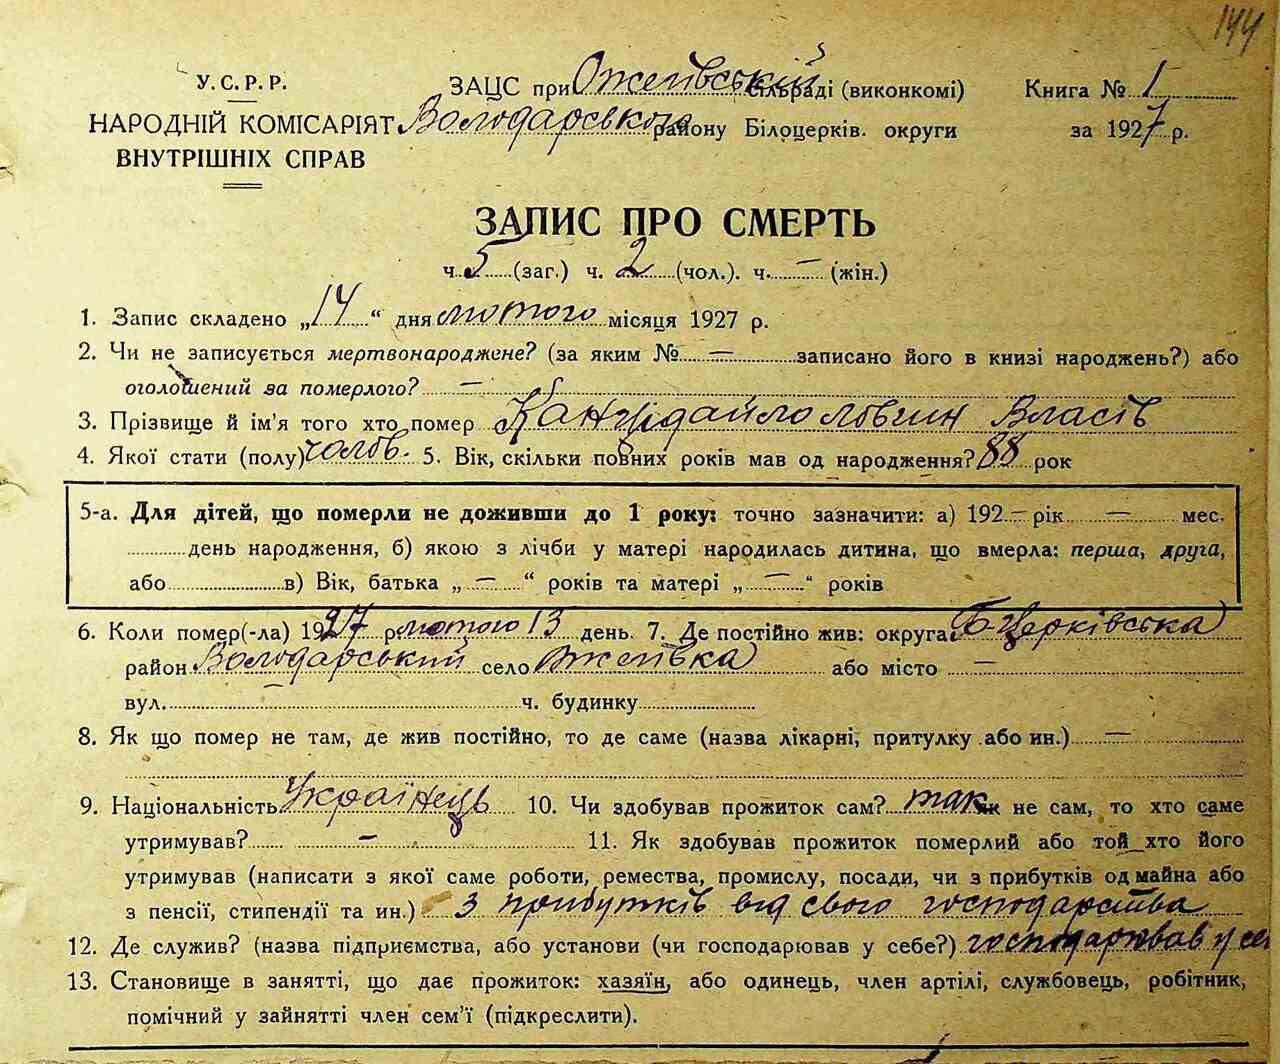 144
У.С.Р.Р. ЗАЦС при Ожеївській сільраді (виконкомі) Книга № 1
НАРОДНІЙ КОМІСАРІЯТ Володарського району Білоцерків. округи за 1927 р.
ВНУТРІШНІХ СПРАВ
ЗАПИС ПРО СМЕРТЬ
ч. 5 (заг.) ч. 2 (чол.). ч. — (жін.)
1. Запис складено „14“ дня лютого місяця 1927 р.
2. Чи не записується мертвонароджене? (за яким № — записано його в книзі народжень?) або
оголошений за померлого? —
3. Прізвище й ім'я того хто помер Власів
4. Якої стати (полу) чолов. 5. Вік, скільки повних років мав од народження? 88 рок
5-а. Для дітей, що померли не доживши до 1 року: точно зазначити: а) 192 — рік — мес.
день народження, б) якою з лічби у матері народилась дитина, що вмерла: перша, друга,
або в) Вік, батька „ — “ років та матері „ — “ років
6. Коли помер(-ла) 1927 р. лютого 13 день. 7. Де постійно жив: округа Б Церківська
район Володарський село Ожеївка або місто —
вул. — ч. будинку
8. Як що помер не там, де жив постійно, то де саме (назва лікарні, притулку або ин.) —
9. Національність Українець 10. Чи здобував прожиток сам? так як не сам, то хто саме
утримував? — 11. Як здобував прожиток померлий або той хто його
утримував (написати з якої саме роботи, ремества, промислу, посади, чи з прибутків од майна або
з пенсії, стипендії та ин.) з прибутків від свого господарства
12. Де служив? (назва підприємства, або установи (чи господарював у себе?) господарював у себ
13. Становище в занятті, що дає прожиток: хазяїн, або одинець, член артілі, службовець, робітник,
помічний у зайнятті член сем'ї (підкреслити).